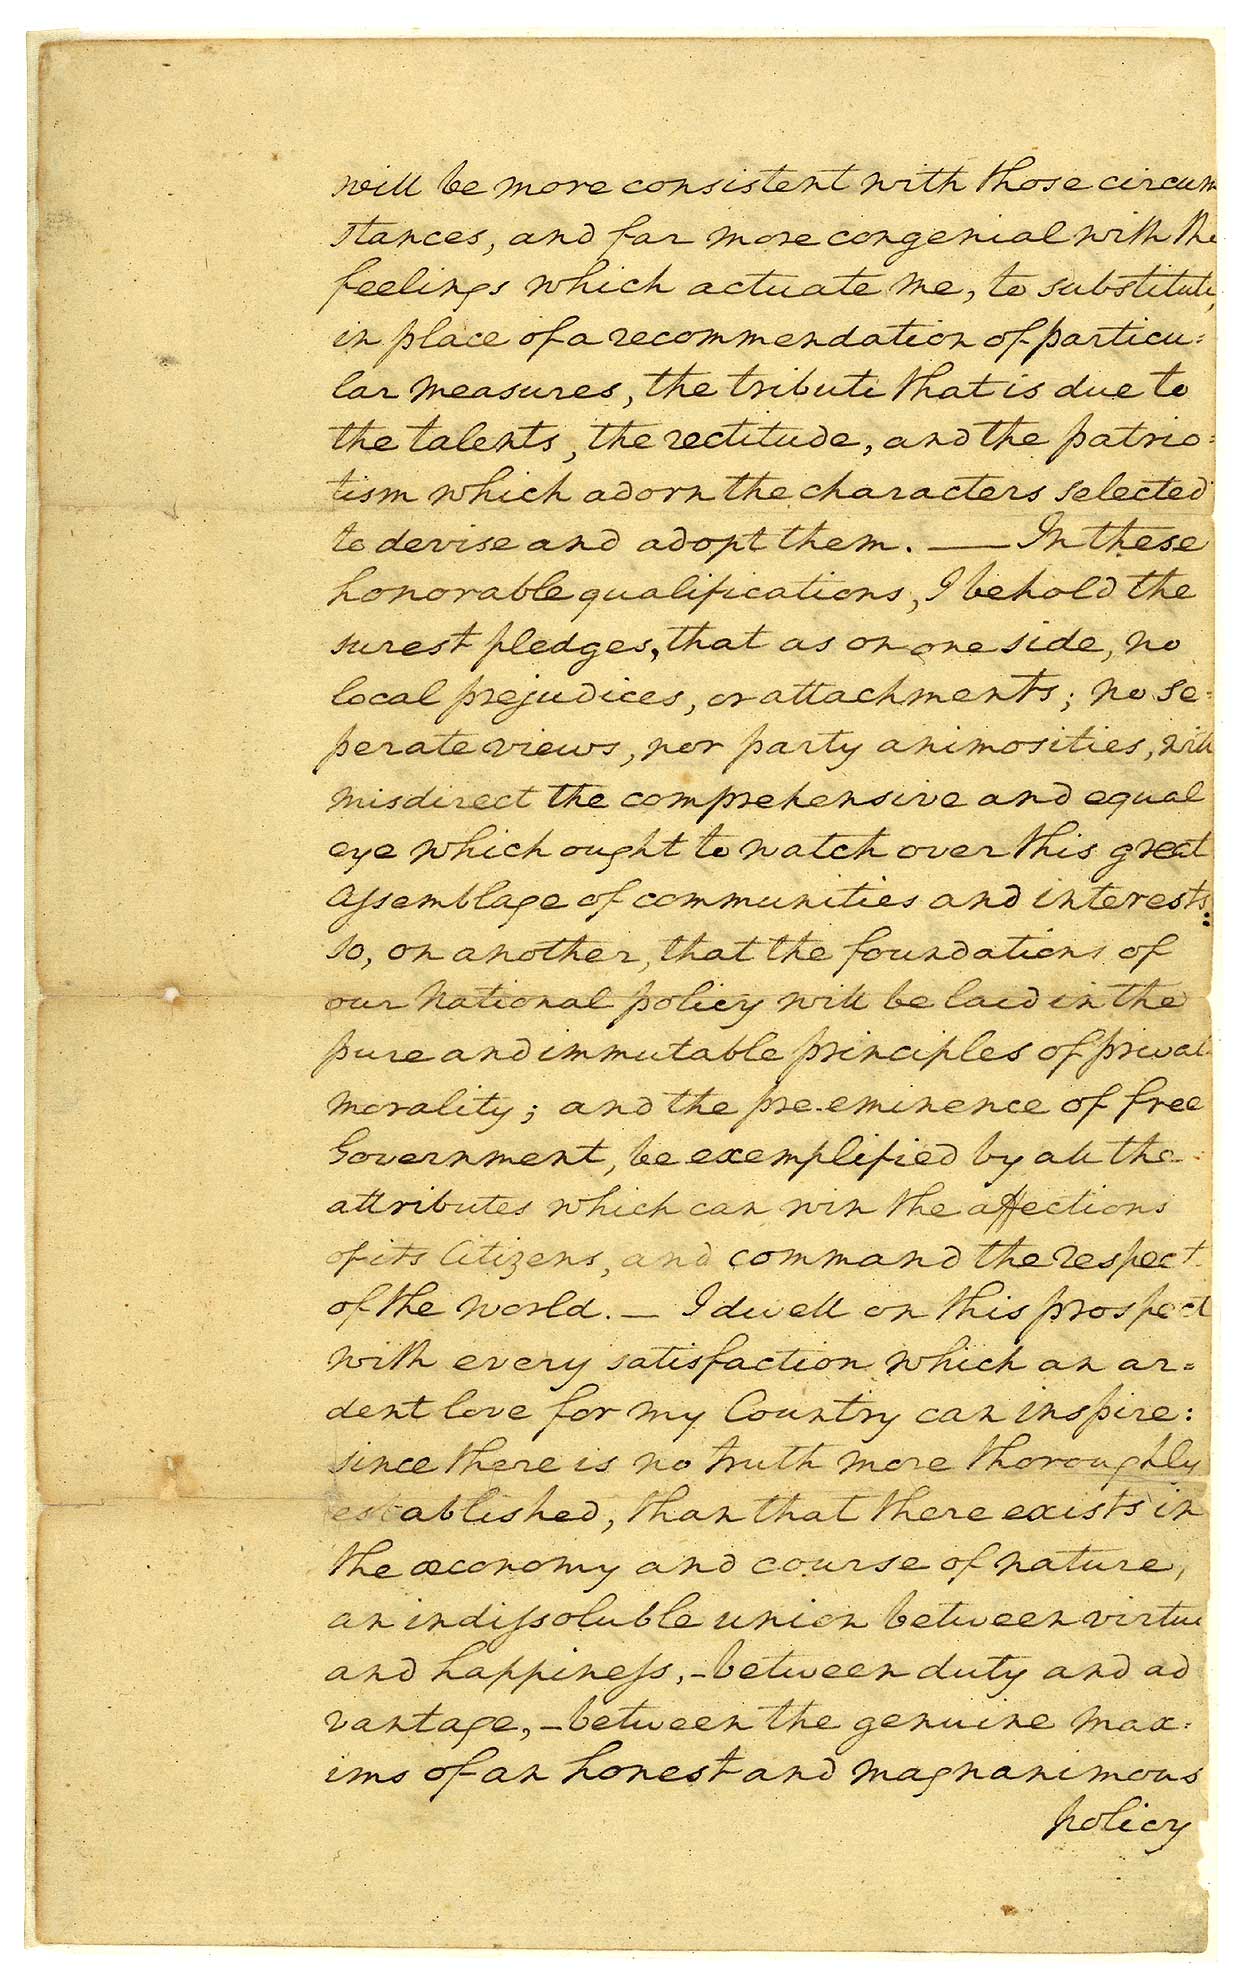 will be more consistent with those circum
stances, and far more congenial with the
feelings which actuate me, to substitute,
in place of a recommendation of particu=
lar measures, the tribute that is due to
the talents, the rectitude, and the patrio=
tism which adorn the characters selected
to devise and adopt them. — In these
honorable qualifications, I behold the
surest pledges, that as on one side, no
local prejudices, or attachments; no se=
perate views, nor party animosities, will
misdirect the comprehensive and equal
eye which ought to watch over this great
assemblage of communities and interests:
so, on another, that the foundations of
our National policy will be laid in the
pure and immutable principles of privat
morality; and the pre-eminence of free
Government, be exemplified by all the
attributes which can win the affections
of its Citizens, and command the respect
of the world. — I dwell on this prospect
with every satisfaction which an ar=
dent love for my Country can inspire:
since there is no truth more thoroughly
established, than that there exists in
the œconomy and course of nature,
an indissoluble union between virtue
and happiness, — between duty and ad
vantage, — between the genuine max=
ims of an honest and magnanimous
policy